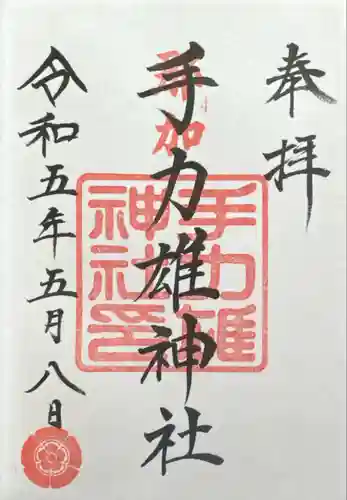 奉拝
那加
手力雄神社
手力雄
神社印
令和五年五月八日